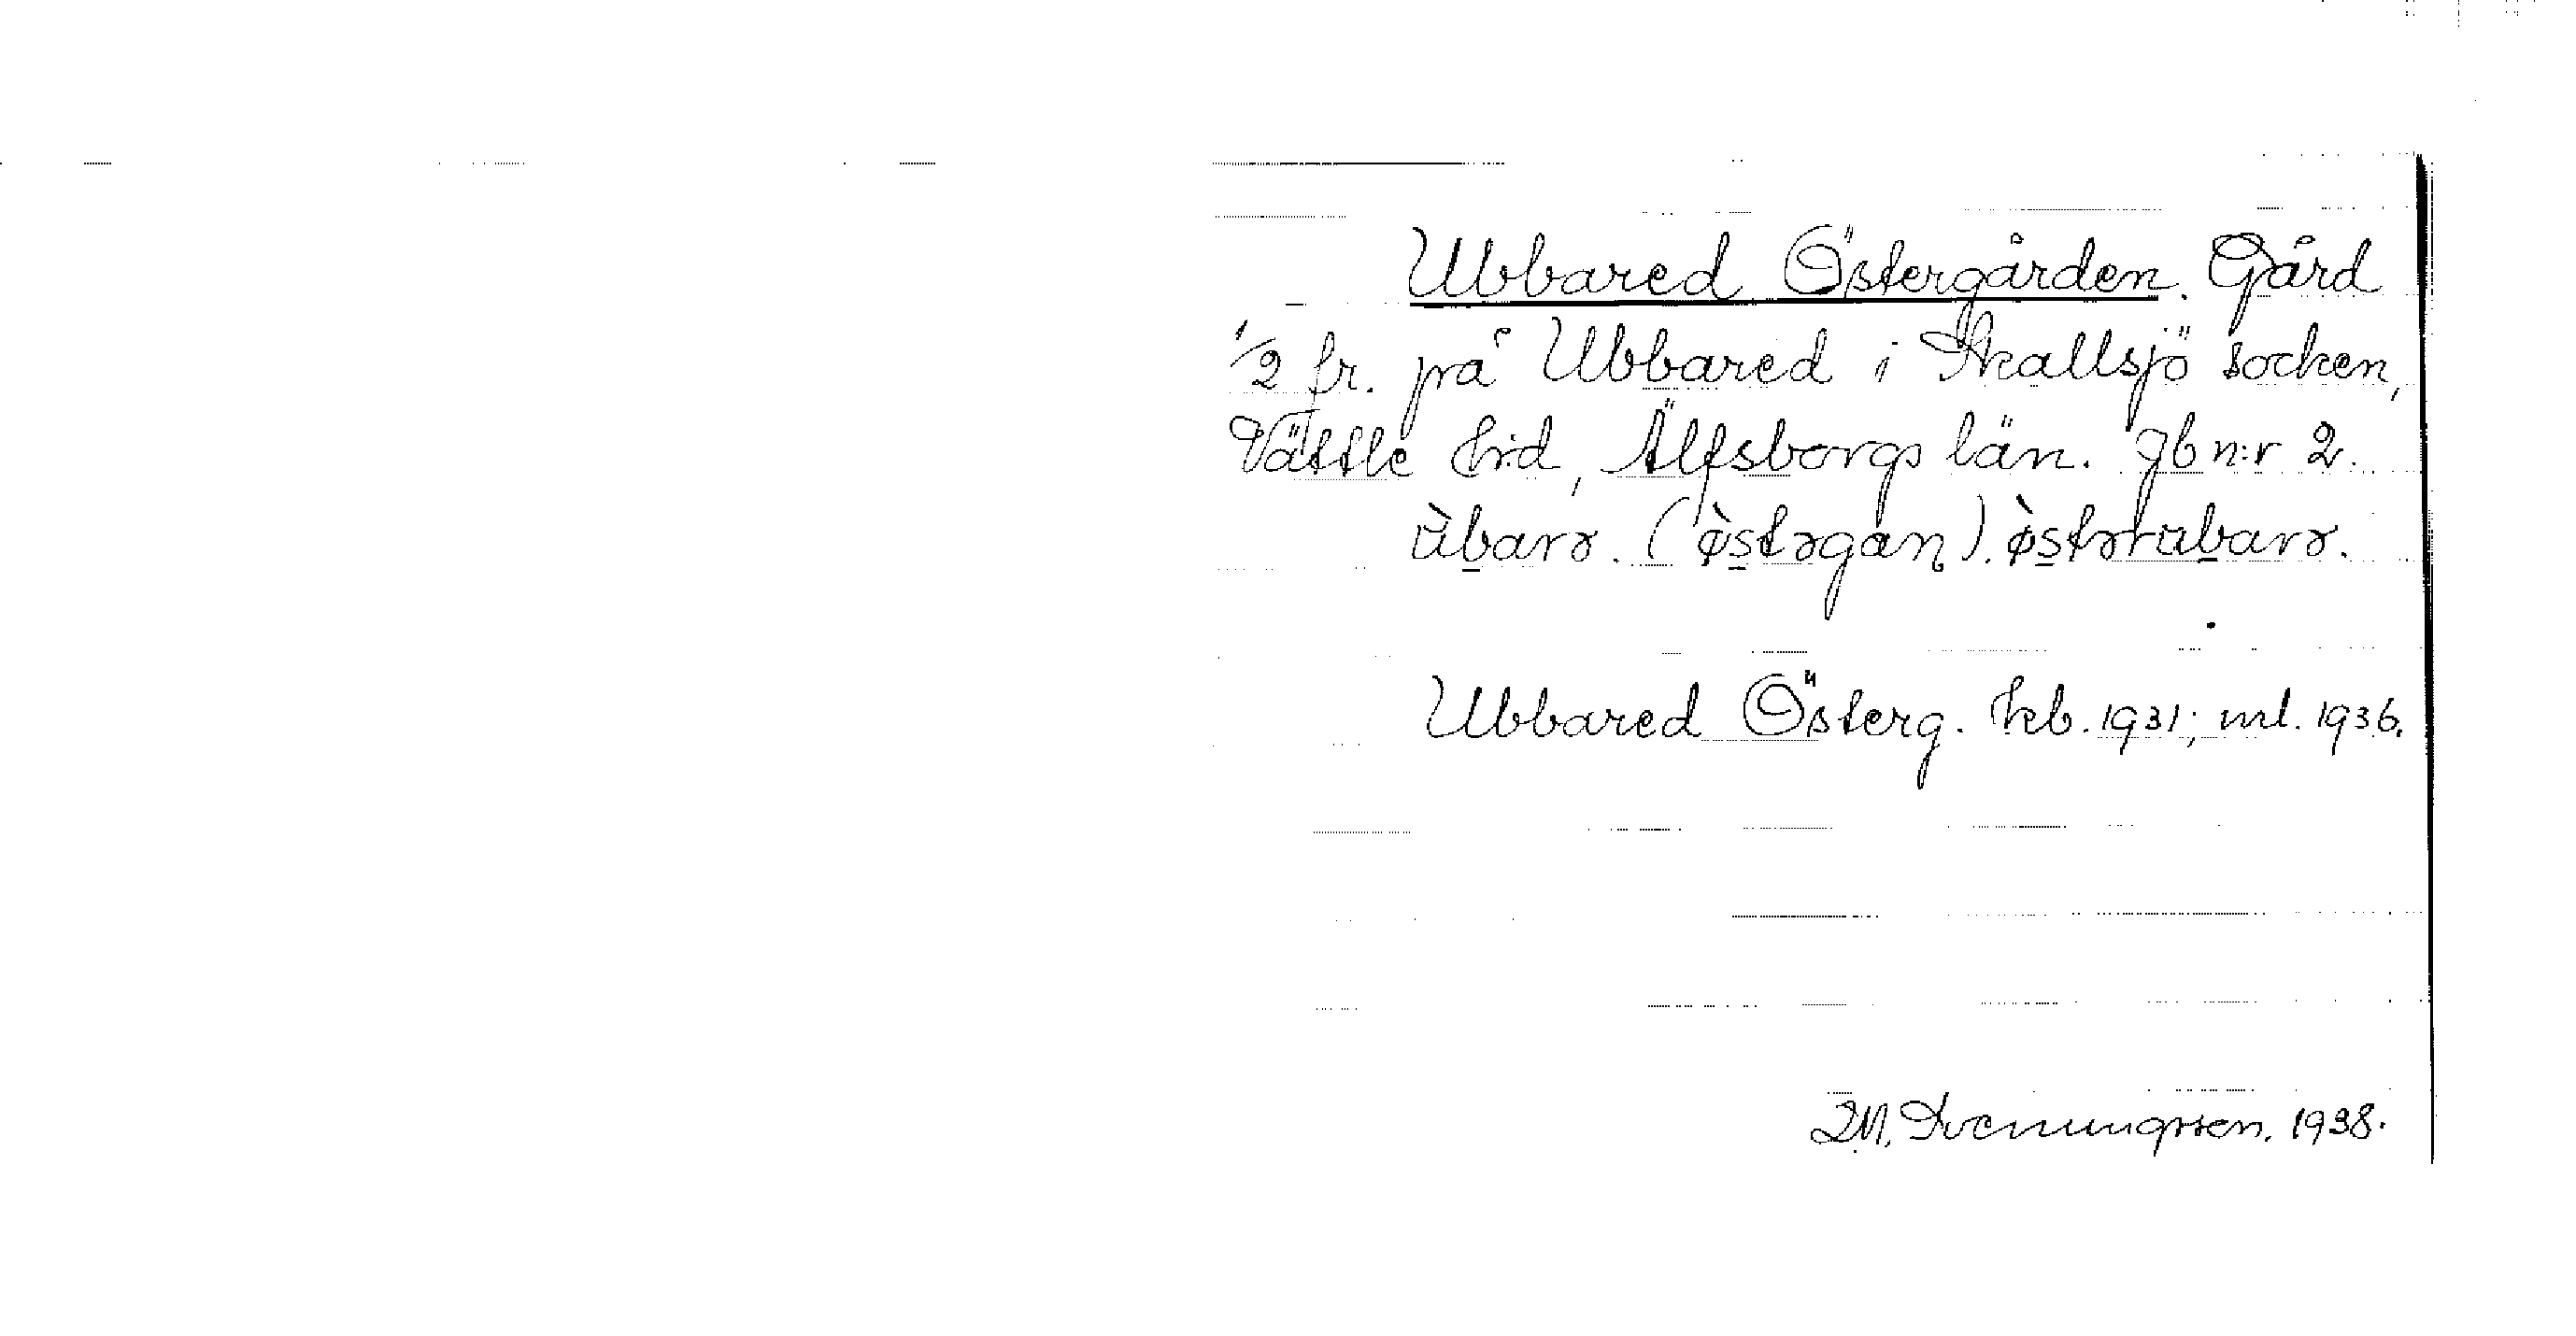 Ubbared Östergården. Gård
1/2 fr. på Ubbared i Skallsjö socken,
Vättle hrd, Älfsborgs län. Jb n:r 2.
ùbarə. (ø̀stəgan). ø̀stərubarə.
Ubbared Österg. kb. 1931; ml. 1936.
Svenungsson. 1938.